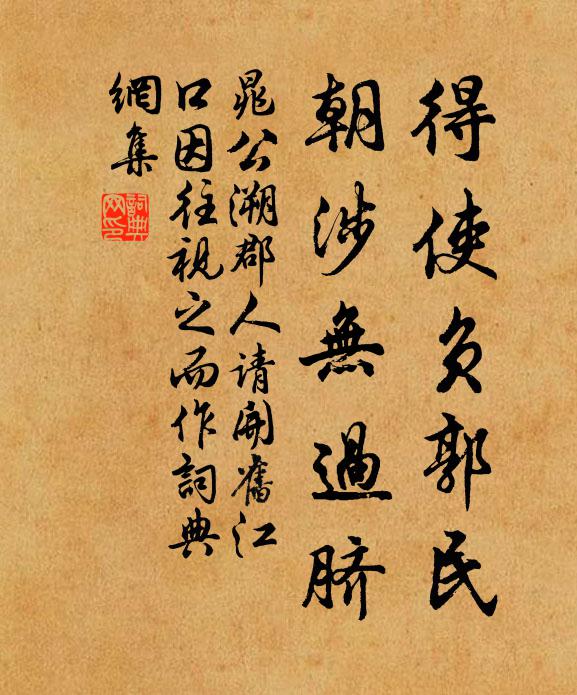 得使负郭民
朝涉無過脐
晁公溯郡人请開舊江
口因往视之而作詞典
網集
詞典
网印